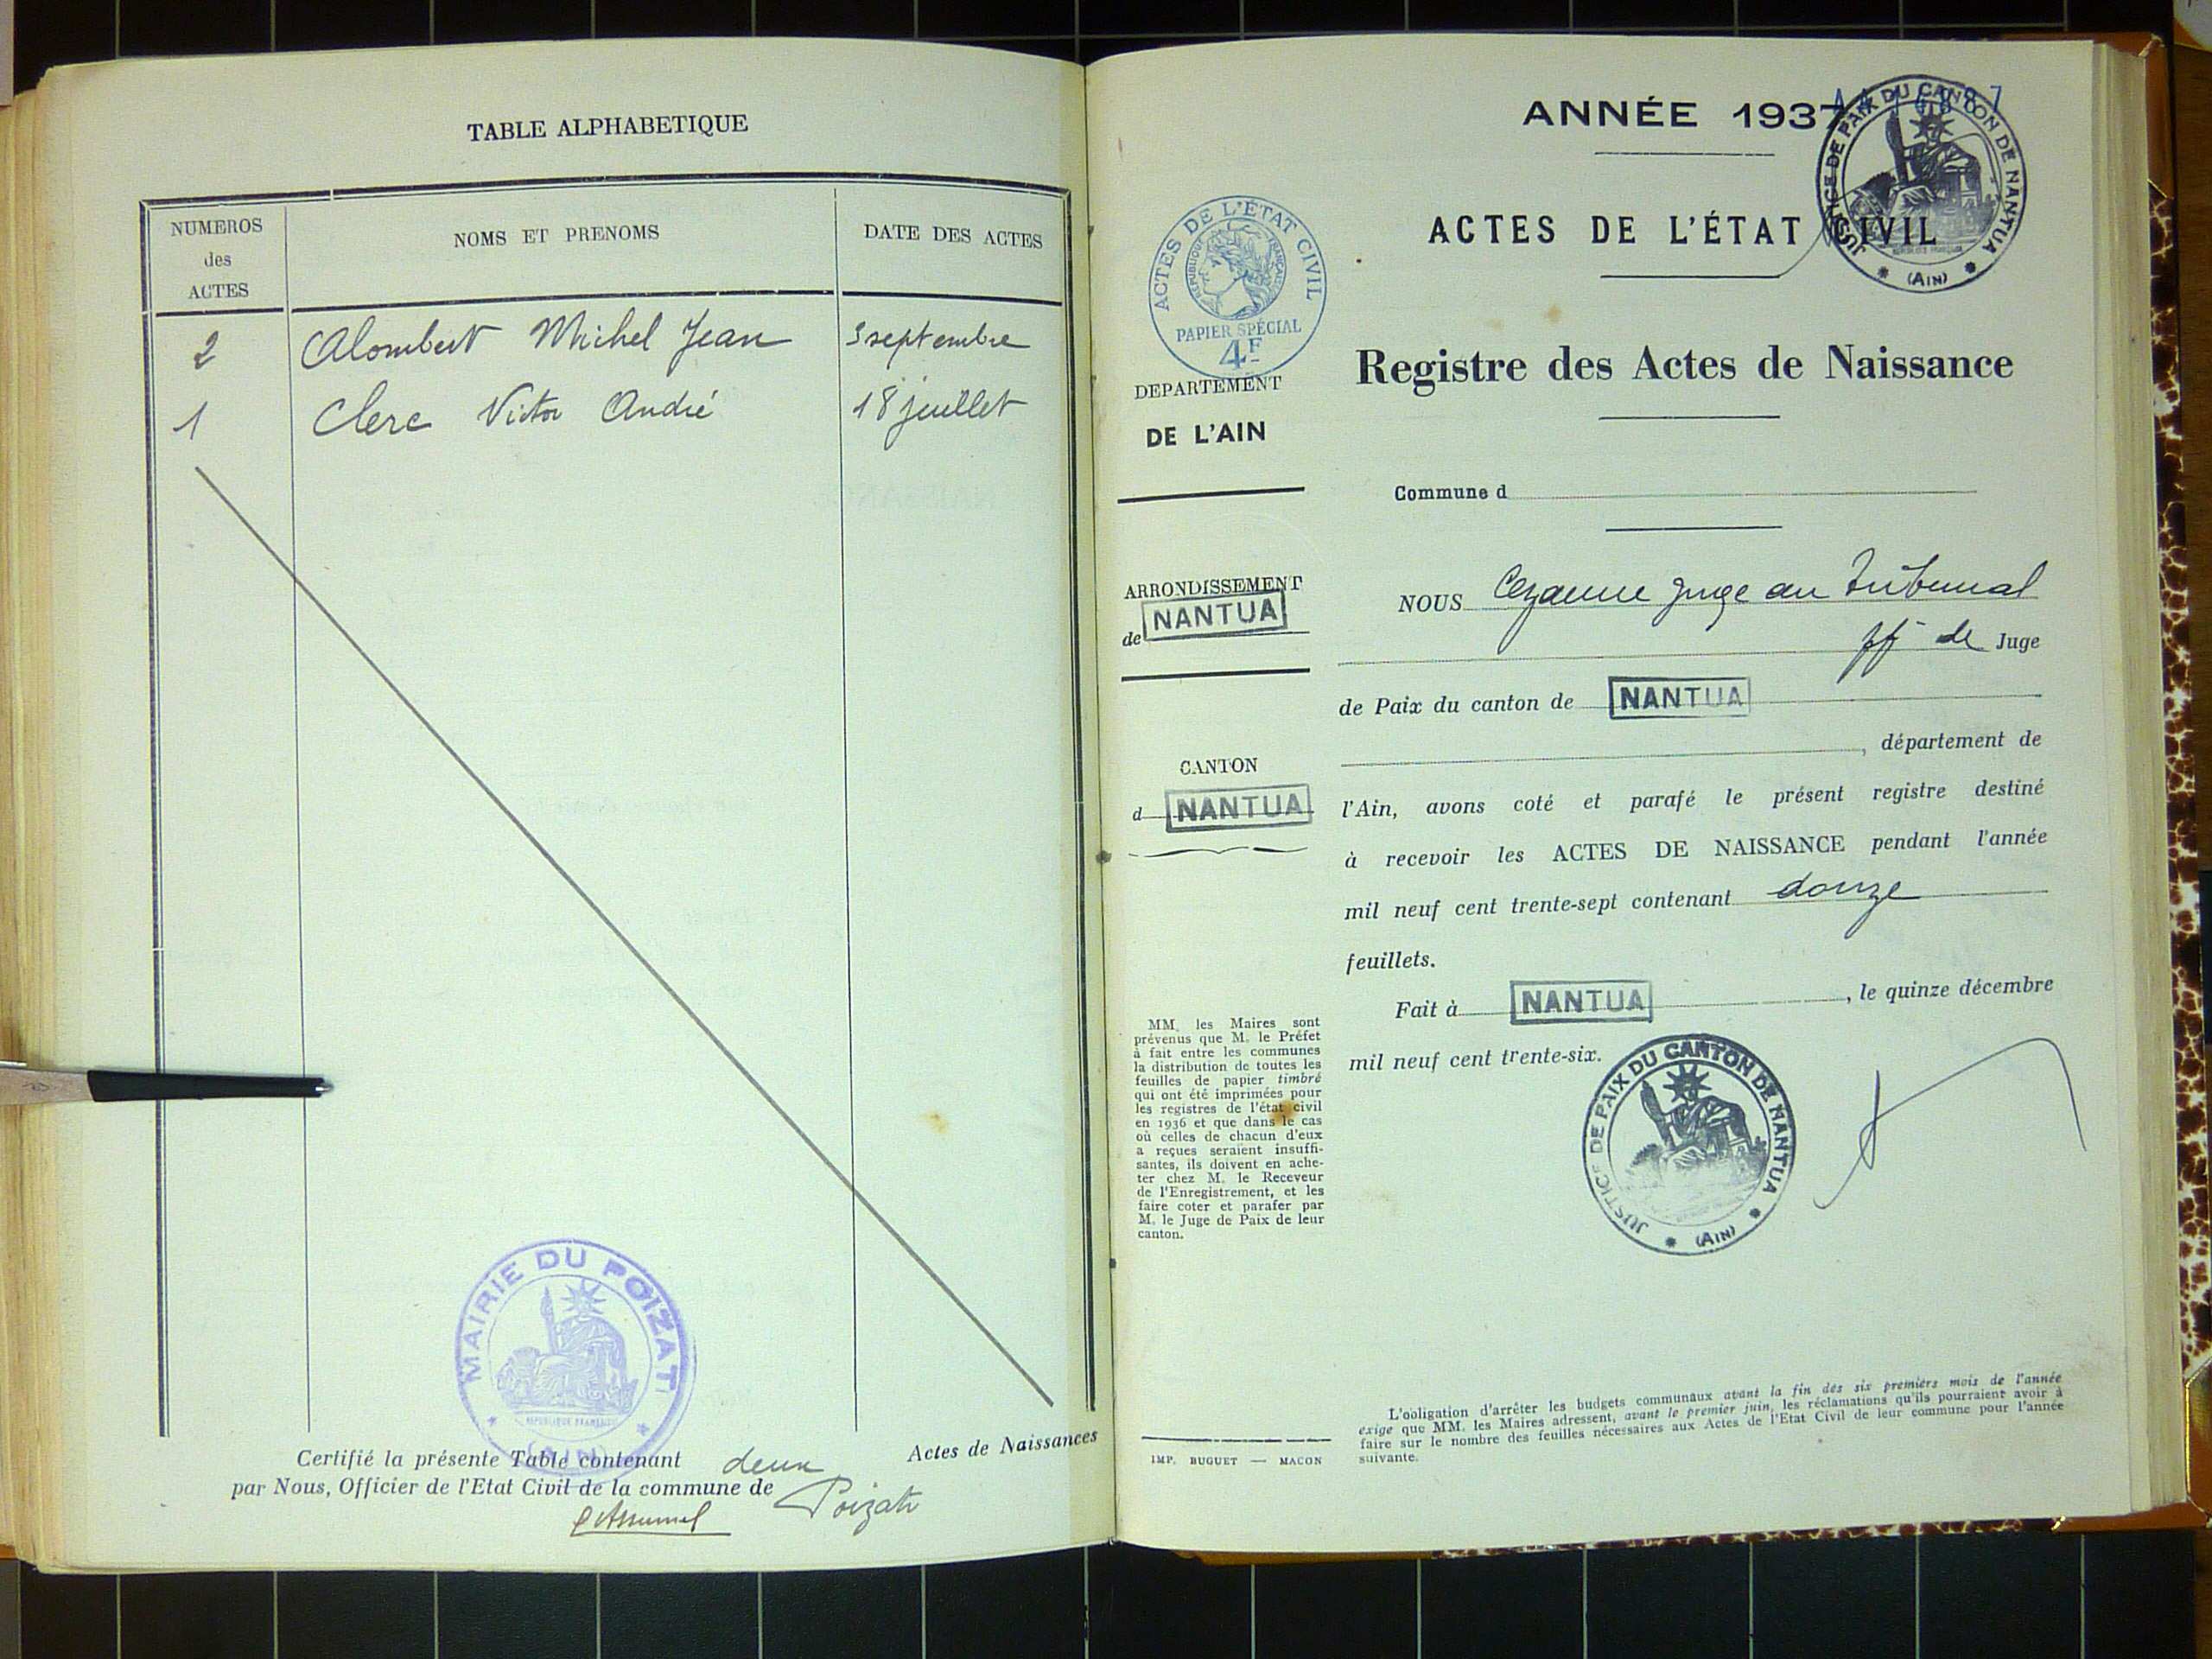 TABLE ALPHABETIQUE
NUMEROS
des
ACTES
NOMS ET PRENOMS
DATE DES ACTES
2 Alombert Michel Jean 3 septembre
1 Clerc Victor André 18 juillet
MAIRIE DU POIZAT
REPUBLIQUE FRANÇAISE
(AIN)
Certifié la présente Table contenant deux Actes de Naissances
par Nous, Officier de l'Etat Civil de la commune de Poizat
ANNÉE 1937
JUSTICE DE PAIX DU CANTON DE NANTUA
(AIN)
ACTES DE L'ÉTAT CIVIL
ACTES DE L'ÉTAT CIVIL
REPUBLIQUE FRANÇAISE
PAPIER SPÉCIAL
4F
DEPARTEMENT
DE L'AIN
Registre des Actes de Naissance
Commune d
ARRONDISSEMENT
de NANTUA
CANTON
d NANTUA
NOUS Cezanne Juge au Tribunal
ff de Juge
de Paix du canton de NANTUA
, département de
l'Ain, avons coté et parafé le présent registre destiné
à recevoir les ACTES DE NAISSANCE pendant l'année
mil neuf cent trente-sept contenant douze
feuillets.
Fait à NANTUA, le quinze décembre
mil neuf cent trente-six.
JUSTICE DE PAIX DU CANTON DE NANTUA
(AIN)
MM. les Maires sont
prévenus que M. le Préfet
à fait entre les communes
la distribution de toutes les
feuilles de papier timbré
qui ont été imprimées pour
les registres de l'état civil
en 1936 et que dans le cas
où celles de chacun d'eux
a reçues seraient insuffi-
santes, ils doivent en ache-
ter chez M. le Receveur
de l'Enregistrement, et les
faire coter et parafer par
M. le Juge de Paix de leur
canton.
IMP. BUGUET — MACON
L'obligation d'arrêter les budgets communaux avant la fin des six premiers mois de l'année
exige que MM. les Maires adressent, avant le premier juin, les réclamations qu'ils pourraient avoir à
faire sur le nombre des feuilles nécessaires aux Actes de l'Etat Civil de leur commune pour l'année
suivante.